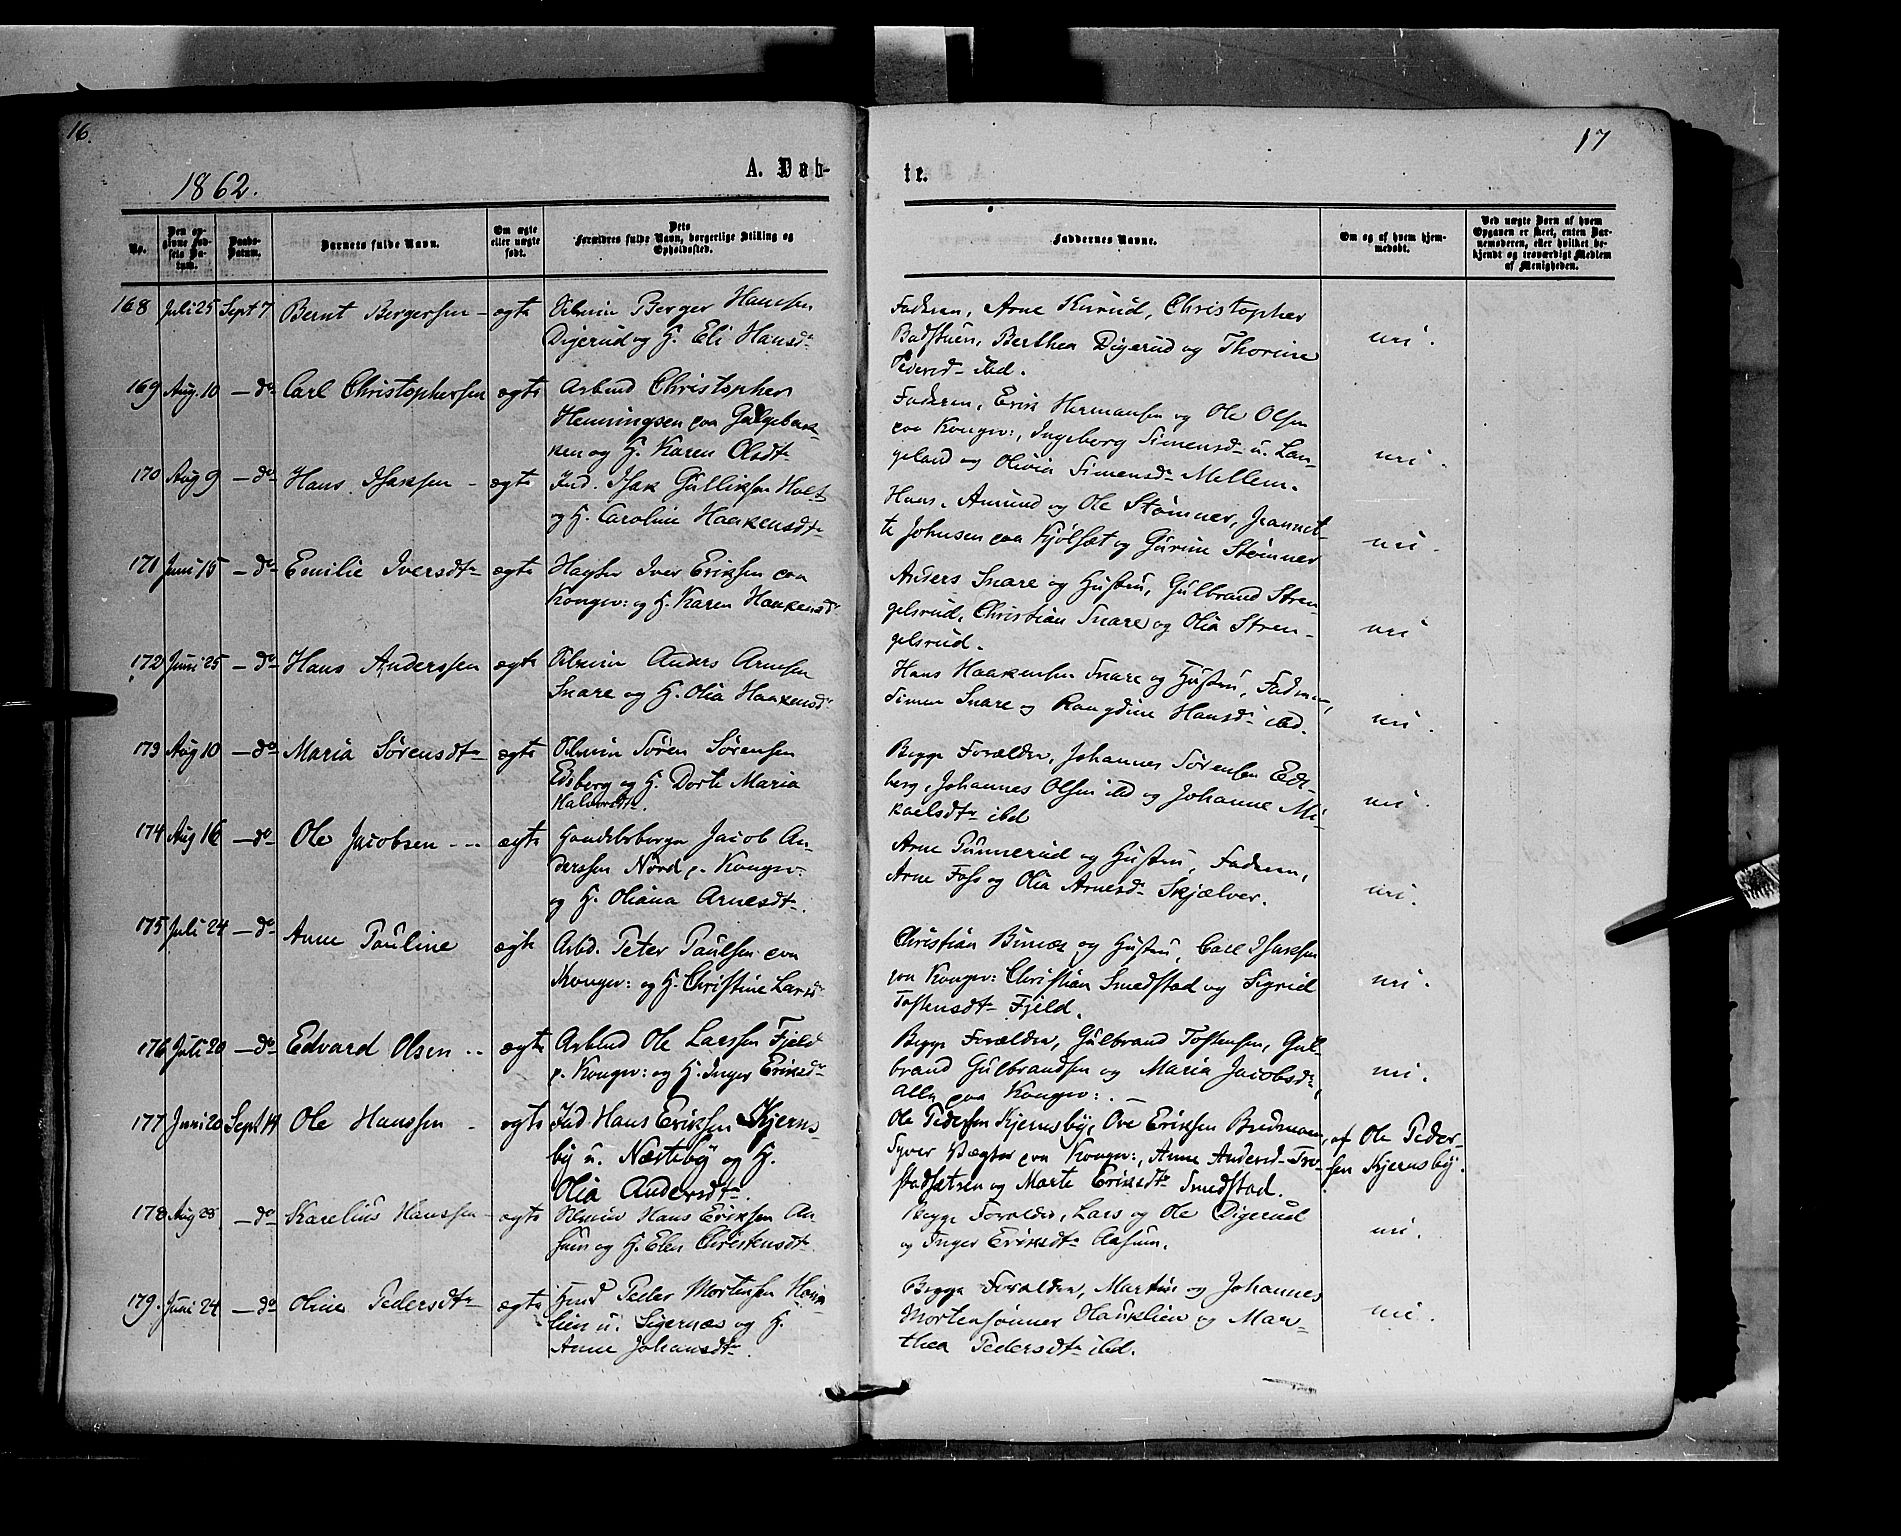 16.
17
1862.
A. Døb-
te.
No.
Den opgivne Fødsels Datum.
Daabs-Datum.
Barnets fulde Navn.
Om ægte eller uægte født.
Dets Forældres fulde Navn, borgerlige Stilling og Opholdssted.
Faddernes Navne.
Om og af hvem hjemmedøbt.
Ved uægte Børn af hvem Opgaven er skeet, enten Barnemoderen, eller hvilket bekjendt og troværdigt Medlem af Menigheden.
168 Juli 25 Sept 7 Bernt Bergersen - ægte
Berger Hansen
Digerud og H. Eli Hansdr
Faderen, Arne Kurud, Christopher
Badstuen, Berthea Digerud og Thorine
ibd.
nei.
169 Aug. 10 - do Carl Christophersen ægte
Arbmd Christopher
Henningsen paa Galgebak-
ken og H. Karen Olsdtr
Faderen, Erik Hermansen og Ole Olsen
paa Kongsv:, Ingeborg Simensdr u. Lan-
geland og Olivia Simensdr Mellem.
nei.
170 Aug 9 - do Hans Isaksen - ægte
Ind. Isak Gulliksen Holt
og H. Caroline Haakensdtr
Hans, Amund og Ole Stømner, Jeannet-
te Johnsen paa Kjølsæt og Gurine Stømner
nei.
171 Juni 15 - do Emilie Iversdtr ægte
Iver Eriksen paa
Kongsv: og H. Karen Haakensdr
Anders Snare og Hustru, Gulbrand Stren-
gelsrud, Christian Snare og Olia Stren-
gelsrud.
nei
172 Juni 25 - do Hans Anderssen ægte
Anders Arnesen
Snare og H. Olia Haakensdr
Hans Haakensen Snare og Hustru, Faderen,
Simen Snare og Rangdine Hansdr ibd.
nei.
173 Aug 10 - do Maria Sørensdtr ægte
Søren Sørensen
Edsberg og H. Dorte Maria
Halvorsdtr.
Begge Forældre, Johannes Sørensen Eds-
berg, Johannes Olsen ibd og Johanne Mi-
kaelsdtr ibd
nei.
174 Aug 16 - do Ole Jacobsen - - ægte
Handelsborger Jacob An-
derssen Nord, p. Kongsv.
og H. Oliana Arnesdtr.
Arne Tunnerud og Hustru, Faderen,
Arne Foss og Olia Arnesdr Skjælver.
nei.
175 Juli 24 - do Anne Pauline ægte
Arbd. Peter Paulsen paa
Kongsv: og H. Christine Larsdr
Christian og Hustru, Carl Isaksen
paa Kongsv: Christian Smedstad og Sigrid
Tostensdtr Fjeld.
nei.
176 Juli 20 - do Edvard Olsen - - ægte
Arbmd Ole Larssen Fjeld
p. Kongsv: og H. Inger Eriksdr
Begge Forældre, Gulbrand Tostensen, Gul-
brand Gulbrandsen og Maria Jacobsdr,
alle paa Kongsv:. -
nei.
177 Juni 20 Sept 14 Ole Hanssen - ægte
Ind Hans Eriksen Kjerns-
by u. Næsteby og H.
Olia Andersdtr.
Ole Pedersen Kjernsby, Ove Eriksen
Syver paa Kongsv:, Anne Andersdr
og Marte Eriksdtr Smedstad.
af Ole Peder-
sen Kjernsby.
178 Aug 28 - do Karelius Hanssen - ægte
Hans Eriksen Aa-
sum og H. Elen Christensdtr
Begge Forældre, Lars og Ole Digerud
og Inger Eriksdtr Aasum.
nei.
179. Juni 24 - do Oline Pedersdtr ægte
Peder Mortensen Hauk-
lien u. Sigernæs og H.
Anne Johansdtr.
Begge Forældre, Martin og Johannes
Mortensønner Hauklien og Mar-
thea Pedersdtr ibd.
nei.